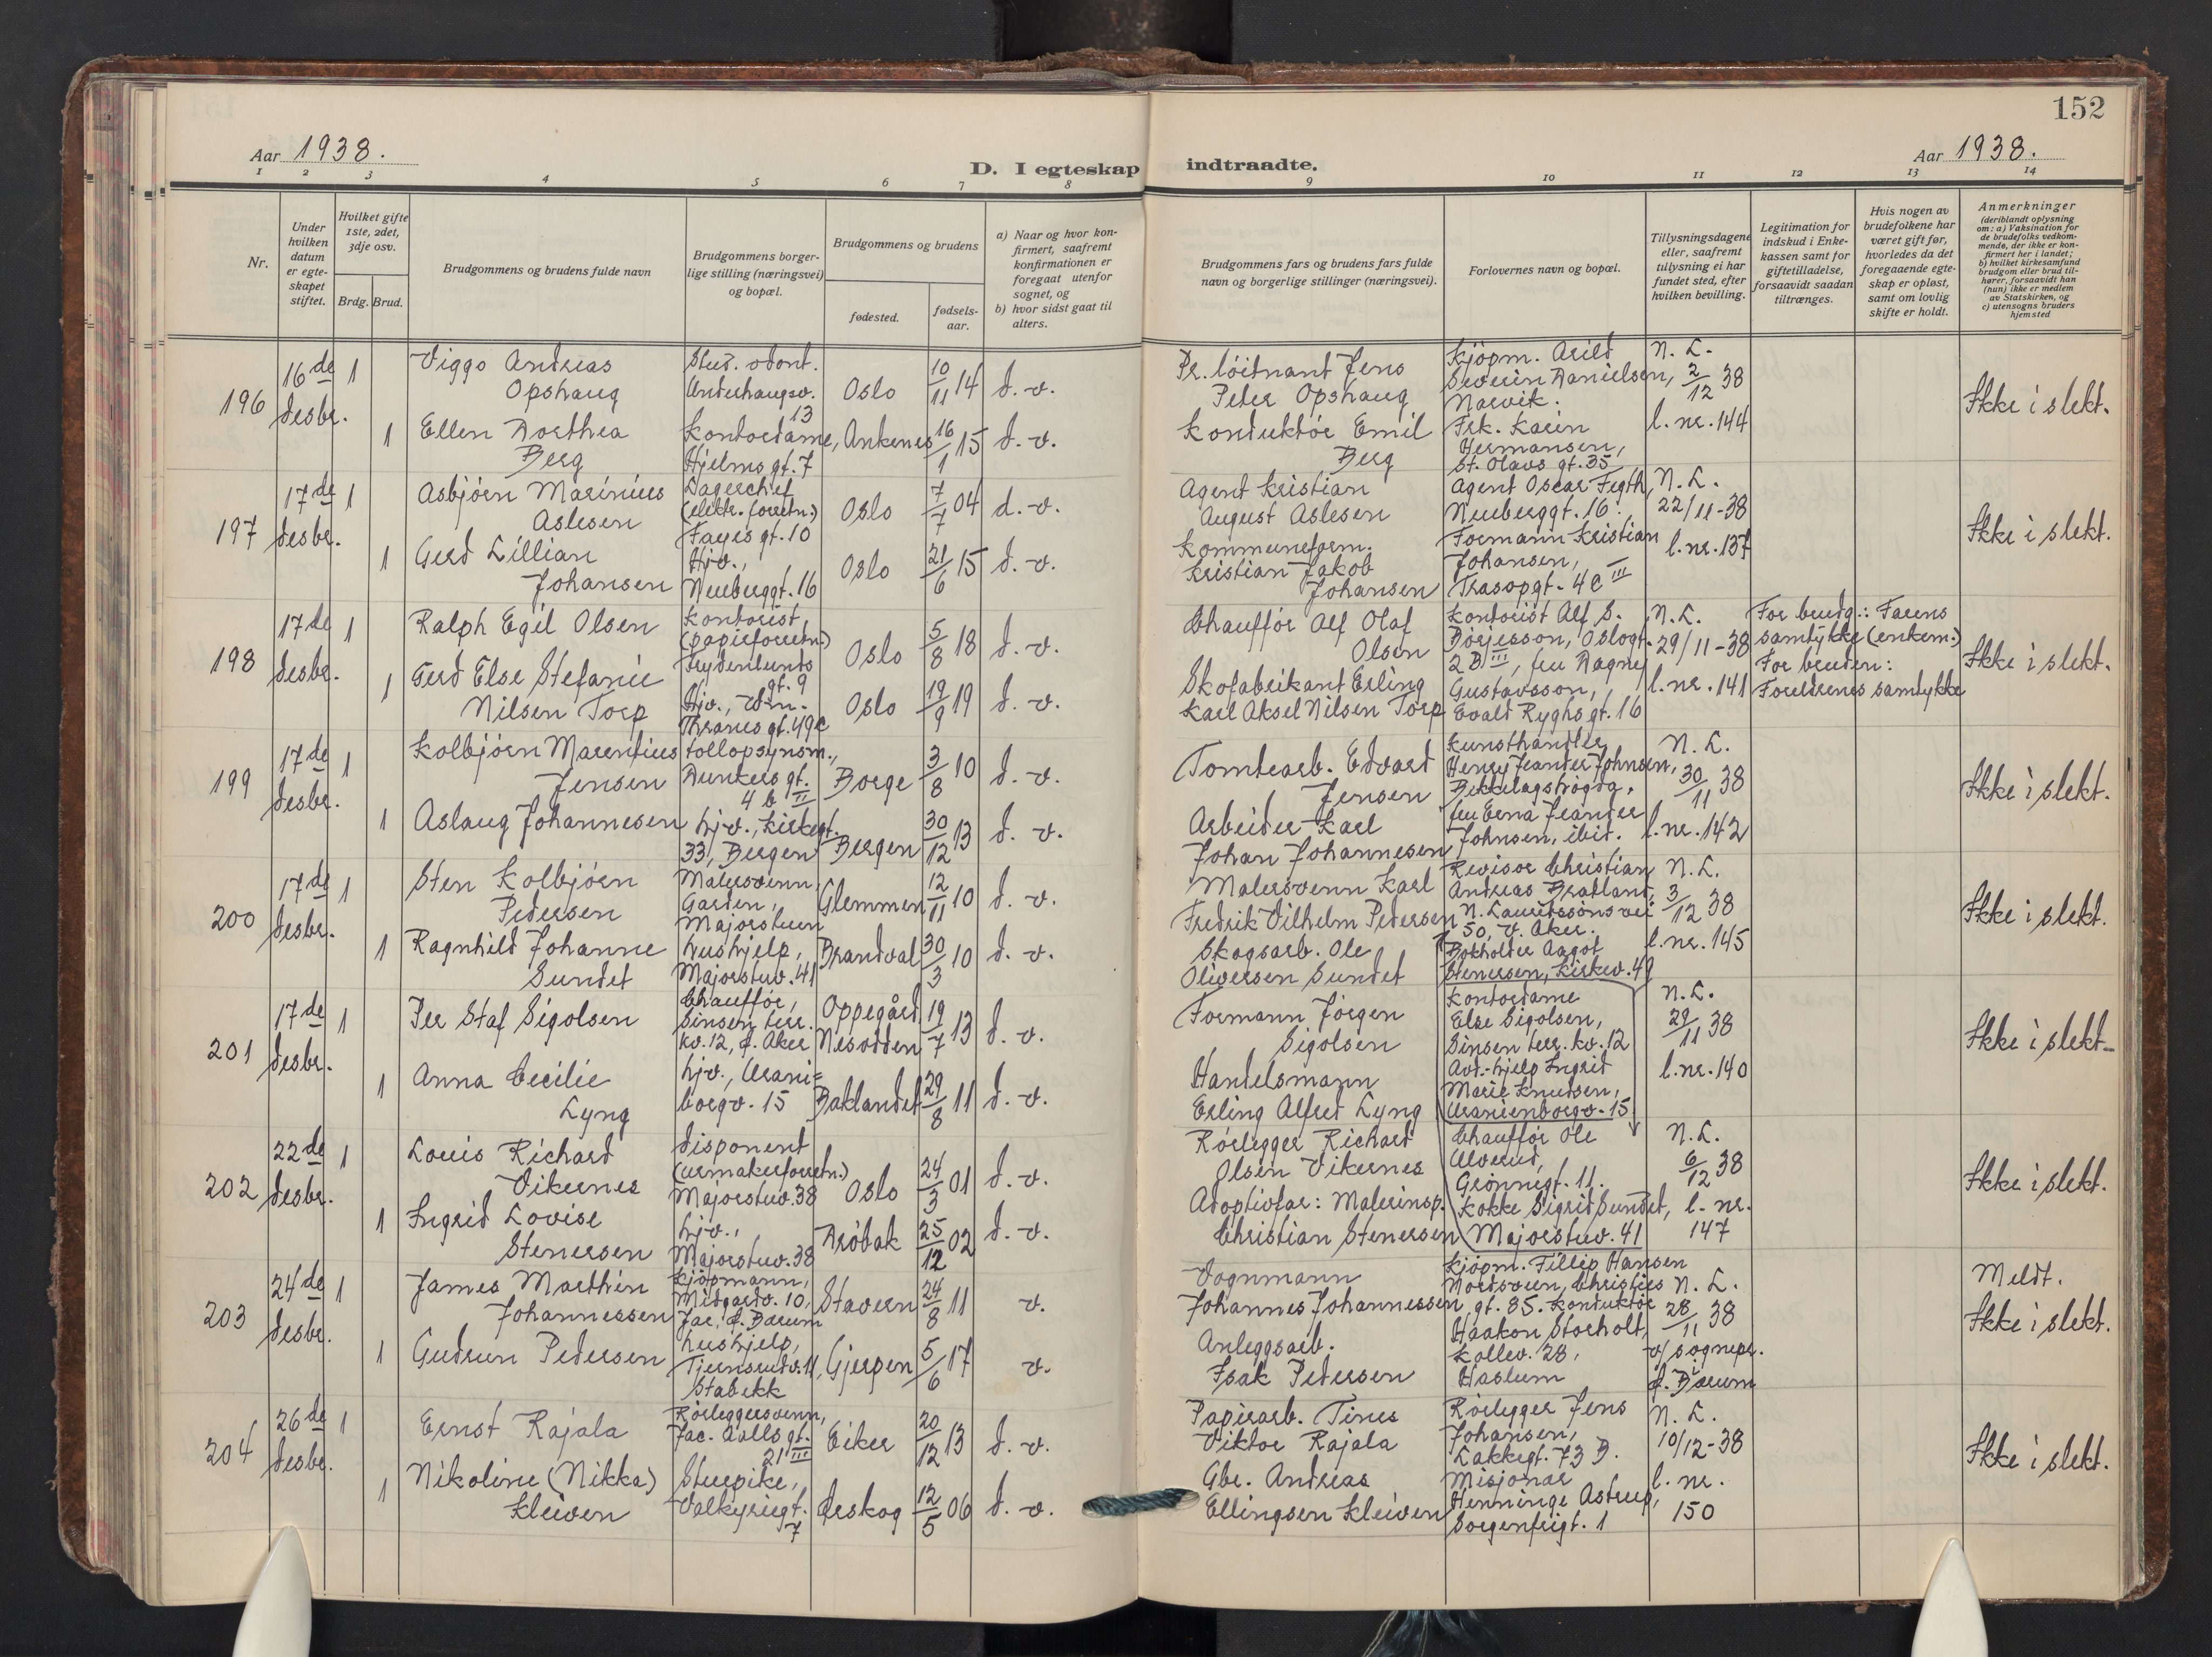 152
Aar 1938.
D. I egteskap indtraadte.
Aar 1938.
1 2 3 4 5 6 7 8 9 10 11 12 13 14
Nr.
Under hvilken datum er egteskapet stiftet.
Hvilket gifte 1ste, 2det, 3dje osv.
Brdg. Brud.
Brudgommens og brudens fulde navn
Brudgommens borgerlige stilling (næringsvei) og bopæl.
Brudgommens og brudens
fødested.
fødselsaar.
a) Naar og hvor konfirmert, saafremt konfirmationen er foregaat utenfor sognet, og
b) hvor sidst gaat til alters.
Brudgommens fars og brudens fars fulde navn og borgerlige stillinger (næringsvei).
Forlovernes navn og bopæl.
Tillysningsdagene eller, saafremt tillysning ei har fundet sted, efter hvilken bevilling.
Legitimation for indskud i Enkekassen samt for giftetilladelse, forsaavidt saadan tiltrænges.
Hvis nogen av brudefolkene har været gift før, hvorledes da det foregaaende egteskap er opløst, samt om lovlig skifte er holdt.
Anmerkninger
(deriblandt oplysning om: a) Vaksination for de brudefolks vedkommende, der ikke er konfirmert her i landet; b) hvilket kirkesamfund brudgom eller brud tilhører, forsaavidt han (hun) ikke er medlem av Statskirken, og c) utensogns bruders hjemsted
196 16de desbr. 1
Viggo Andreas Opshaug
Stud. odont. Underhaugsv. 13
Oslo 10/11 14 d. v.
Pr. löitnant Jens Peter Opshaug
Kjöpm. Arild Severin Danielsen, Narvik.
N. L. 2/12 38
Ikke i slekt.
1 Ellen Dorthea Berg
Kontordame, Hjelms gt. 7
Ankenes 16/1 15 d. v.
Konduktör Emil Berg
Frk. Karin Hermansen, St. Olavs gt. 35
l. nr. 144
197 17de desbr. 1
Asbjörn Marinius Aslesen
Lagerchef (elektr. forretn.) Fayes gt. 10
Oslo 7/7 04 d. v.
Agent Kristian August Aslesen
Agent Oscar Fegth, Neuberggt. 16.
N. L. 22/11-38
Ikke i slekt.
1 Gerd Lillian Johansen
Hjv., Neuberggt. 16
Oslo 21/6 15 d. v.
Kommuneform. Kristian Jakob Johansen
Formann Kristian Johansen, Trasopgt. 4 C III
l. nr. 137
198 17de desbr. 1
Ralph Egil Olsen
Kontorist, (papirforretn.) Frydenlunds gt. 9
Oslo 5/8 18 d. v.
Chaufför Alf Olaf Olsen
Kontorist Alf S. Börjesson, Oslogt. 2 B III, fru Dagny Gustavsson, Evald Ryghs gt. 16
N. L. 29/11-38
For brudg.: Farens samtykke (enkem.)
For bruden: Foreldrenes samtykke
Ikke i slekt.
1 Gerd Else Stefanie Nilsen Torp
Hjv., Thranes gt. 49c
Oslo 19/9 19 d. v.
Skofabrikant Erling Karl Aksel Nilsen Torp
l. nr. 141
199 17de desbr. 1
Kolbjörn Marentius Jensen
Tollopsynsm., Dunkers gt. 4 b II
Borge 3/8 10 d. v.
Tomtearb. Edvard Jensen
Kunsthandler Henry Jeander Johnsen, Bekkelagshögda, fru Erna Jeander Johnsen, ibid.
N. L. 30/11 38
Ikke i slekt.
1 Aslaug Johannesen
hjv., Kirkegt. 33, Bergen
Bergen 30/12 13 d. v.
Arbeider Karl Johan Johannesen
l. nr. 142
200 17de desbr. 1
Sten Kolbjörn Pedersen
Malersvenn, Garden, Majorstuen
Glemmen 12/11 10 d. v.
Malersvenn Karl Fredrik Vilhelm Pedersen
Revisor Christian Andreas Bratland, N. Lauritssöns vei 50, V. Aker.
N. L. 3/12 38
Ikke i slekt.
1 Ragnhild Johanne Sundet
hushjelp, Majorstuv. 41
Brandval 30/3 10 d. v.
Skogsarb. Ole Oliversen Sundet
Bokholder Aagot Stenersen, Kirkev. 49
l. nr. 145
201 17de desbr. 1
Per Staf Sigolsen
Chaufför, Sinsen terr. kv. 12, Ø. Aker
Oppegård Nesodden 19/7 13 d. v.
Formann Jörgen Sigolsen
Kontordame Else Sigolsen, Sinsen terr. kv. 12
N. L. 29/11 38
Ikke i slekt.
1 Anna Cecilie Lyng
hjv., Uranienborgv. 15
Baklandet 29/8 11 d. v.
Handelsmann Erling Alfred Lyng
Avd.-hjelp Ingrid Marie Knudsen, Uranienborgv. 15
l. nr. 140
202 22de desbr. 1
Louis Richard Vikernes
disponent (urmakerforretn.) Majorstuv. 38
Oslo 24/3 01 d. v.
Rörlegger Richard Olsen Vikernes
Chaufför Ole Ulverud, Grönnegt. 11.
N. L. 6/12 38
Ikke i slekt.
1 Ingrid Lovise Stenersen
hjv., Majorstuv. 38
Dröbak 25/12 02 d. v.
Adoptivfar: Malerinsp. Christian Stenersen
Kokke Sigrid Sundet, Majorstuv. 41
l. nr. 147
203 24de desbr. 1
James Marthin Johannessen
Kjöpmann, Midgardv. 10, Jar, Ø. Bærum
Stavern 24/8 11 v.
Vognmann Johannes Johannessen
Kjöpm. Fillip Hansen Nordsveen, Christies gt. 35. Konduktör Haakon Storholt, Kollev. 28, Haslum
N. L. 28/11 38 v/ sognepr. i Ø. Bærum
Meldt. Ikke i slekt.
1 Gudrun Pedersen
hushjelp, Tjernsrudv. 11, Stabekk
Gjerpen 5/6 17 v.
Anleggsarb. Isak Pedersen
204 26de desbr. 1
Ernst Rajala
Rörleggersvenn, Jac. Aalls gt. 21 III
Eiker 20/12 13 d. v.
Papirarb. Tinus Viktor Rajala
Rörlegger Jens Johansen, Lakkegt. 73 B.
N. L. 10/12-38
Ikke i slekt.
1 Nikoline (Nikka) Kleiven
Stuepike, Valkyriegt. 7
Ørskog 12/5 06 d. v.
Gbr. Andreas Ellingsen Kleiven
Misjonær Henninge Astrup, Sorgenfrigt. 1
l. nr. 150